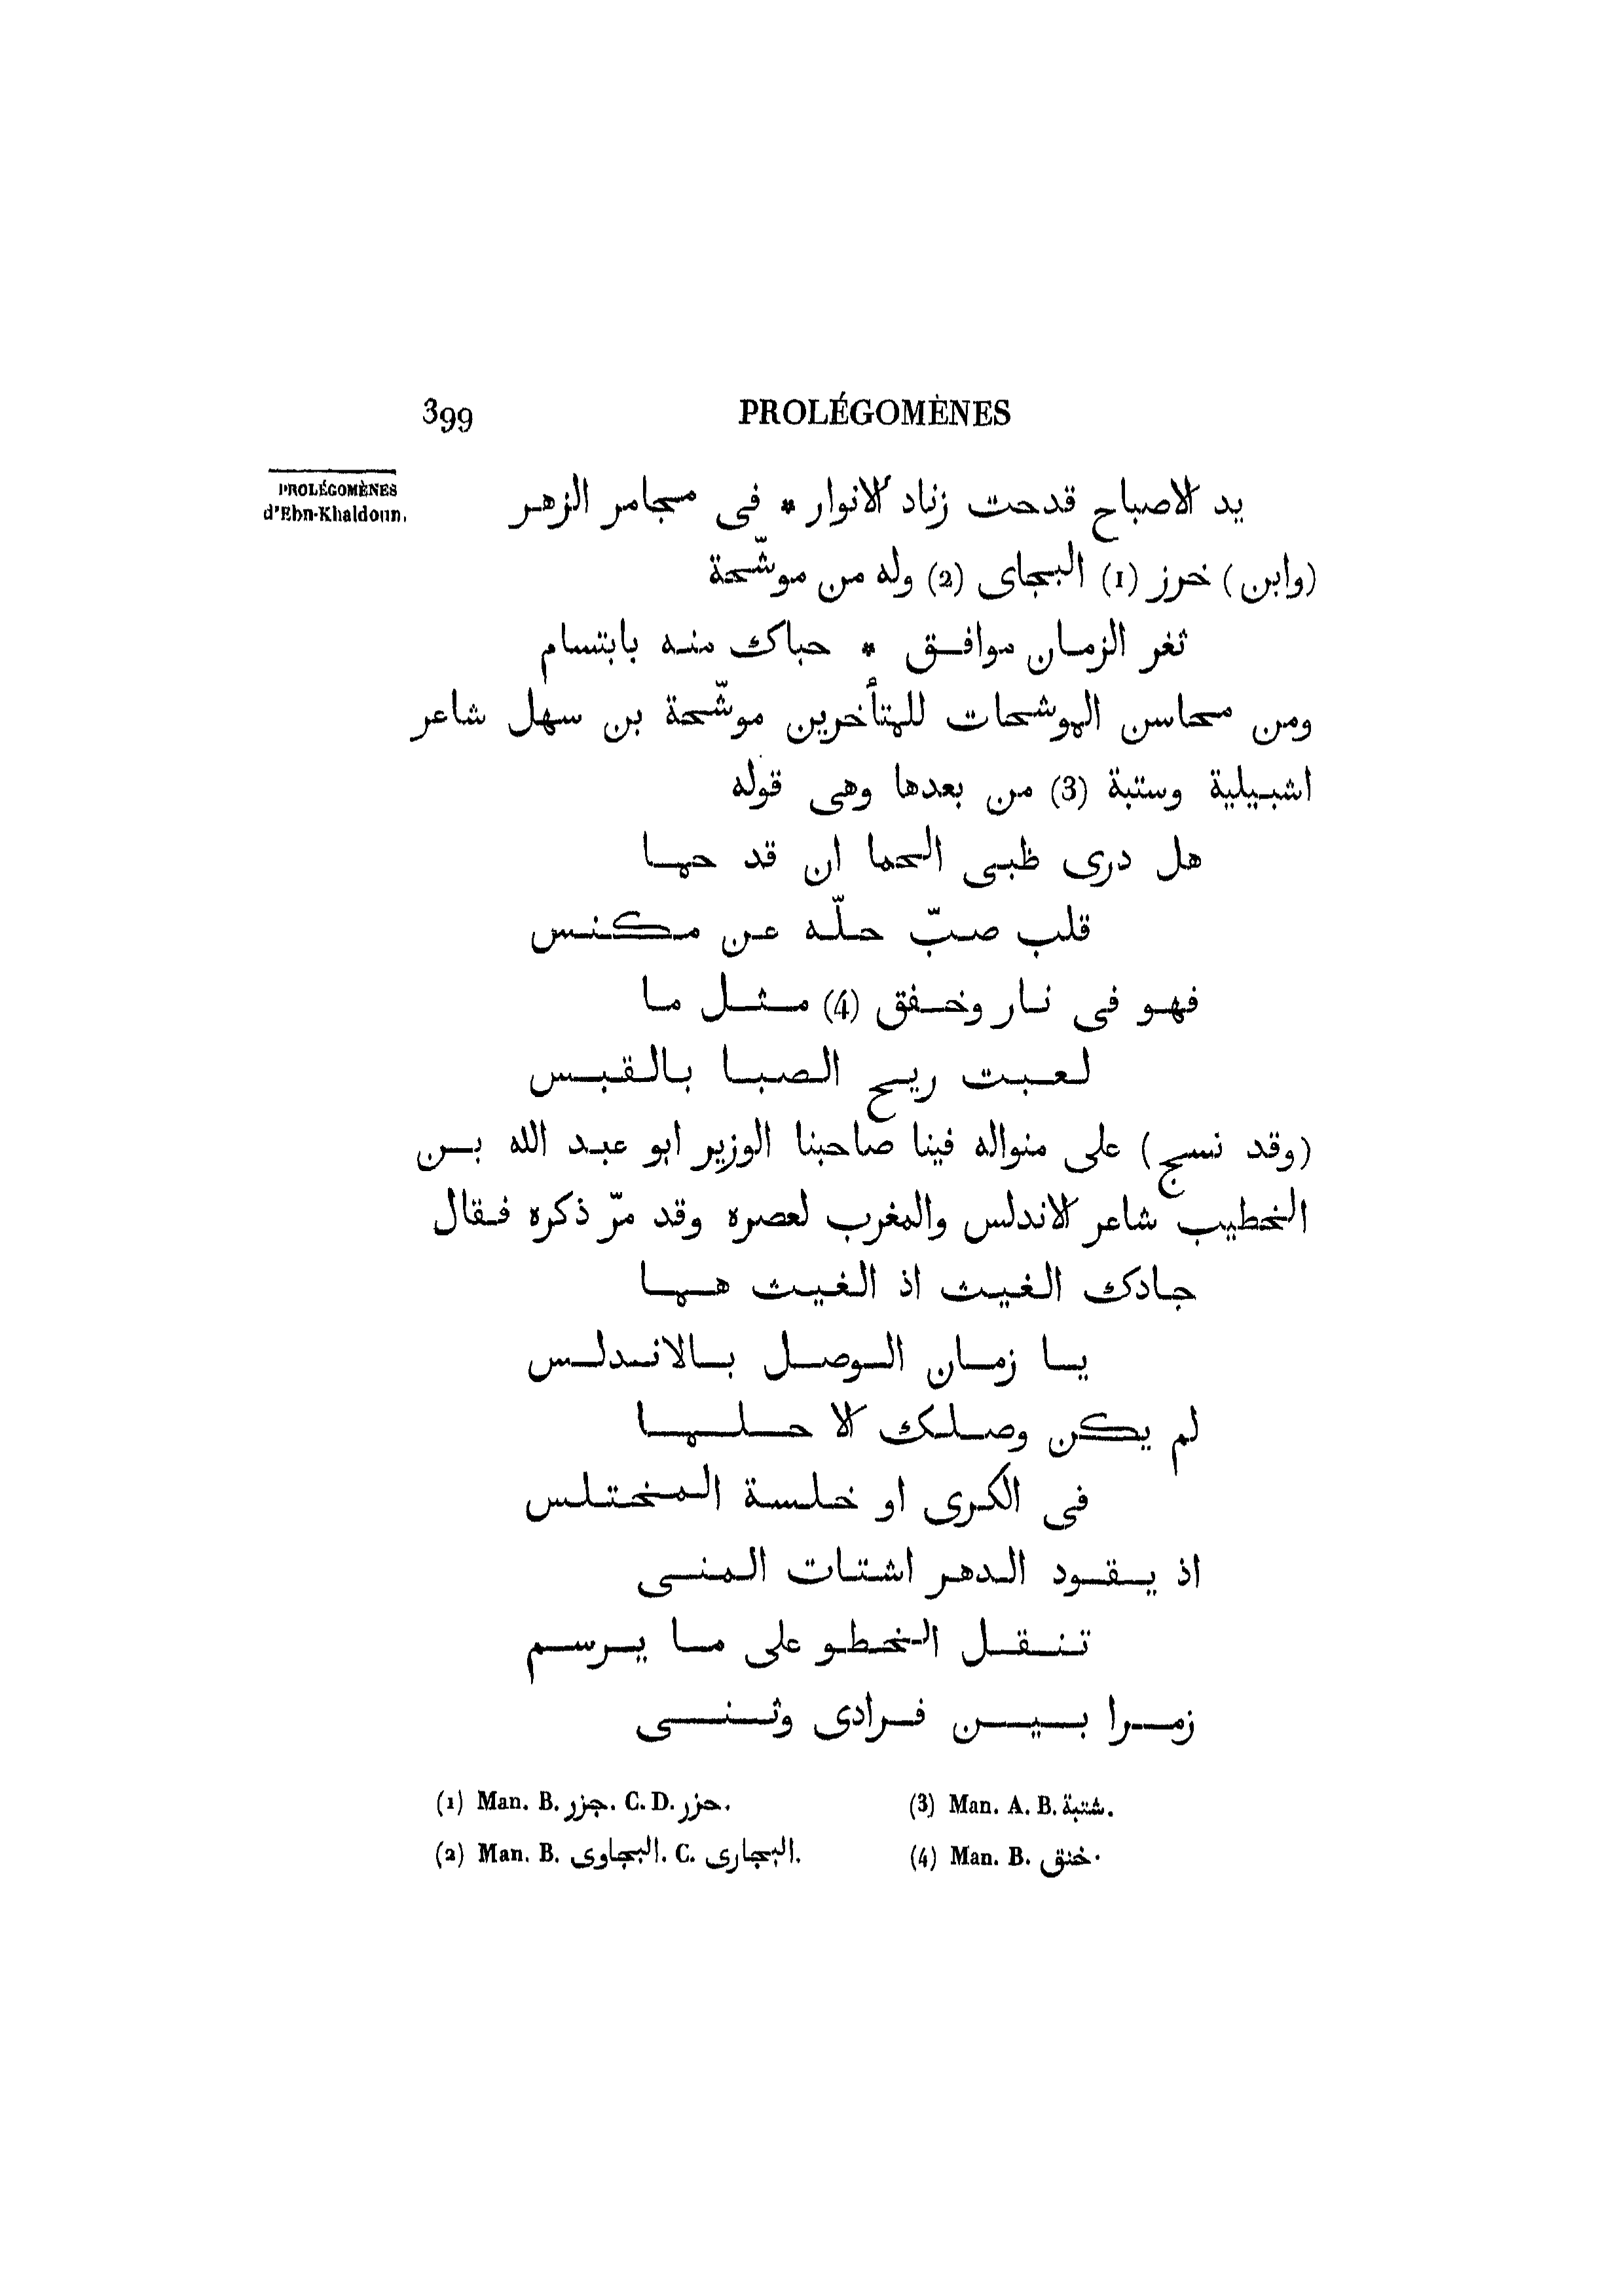 399 PROLÉGOMÈNES
PROLÉGOMÈNES
d'Ebn-Khaldoun.
يد الاصباح قدحت زناد الانوار * فى مجامر الزهر
(وابن) خرز (1) البجاى (2) وله من موشّحة
ثغر الزمان موافق * حباك منه بابتسام
ومن محاسن الموشحات للمتأخرين موشّحة بن سهل شاعر
اشبيلية وستبة (3) من بعدها وهى قوله
هل درى ظبى الحما ان قد حما
قلب صبّ حلّه عن مكنس
فهو فى نار وخفق (4) مثل ما
لعبت ريح الصبا بالقبس
(وقد نسج) على منواله فينا صاحبنا الوزير ابو عبد الله بن
الخطيب شاعر الاندلس والمغرب لعصره وقد مرّ ذكره فقال
جادك الغيث اذ الغيث هما
يا زمان الوصل بالاندلس
لم يكن وصلك الا حلما
فى الكرى او خلسة المختلس
اذ يقود الدهر اشتات المنى
تنقل الخطو على ما يرسم
زمرا بين فرادى وثنى
(1) Man. B. جزر. C. D. حزر.
(2) Man. B. البجاوى. C. البجارى.
(3) Man. A. B. شتبة.
(4) Man. B. خنق.